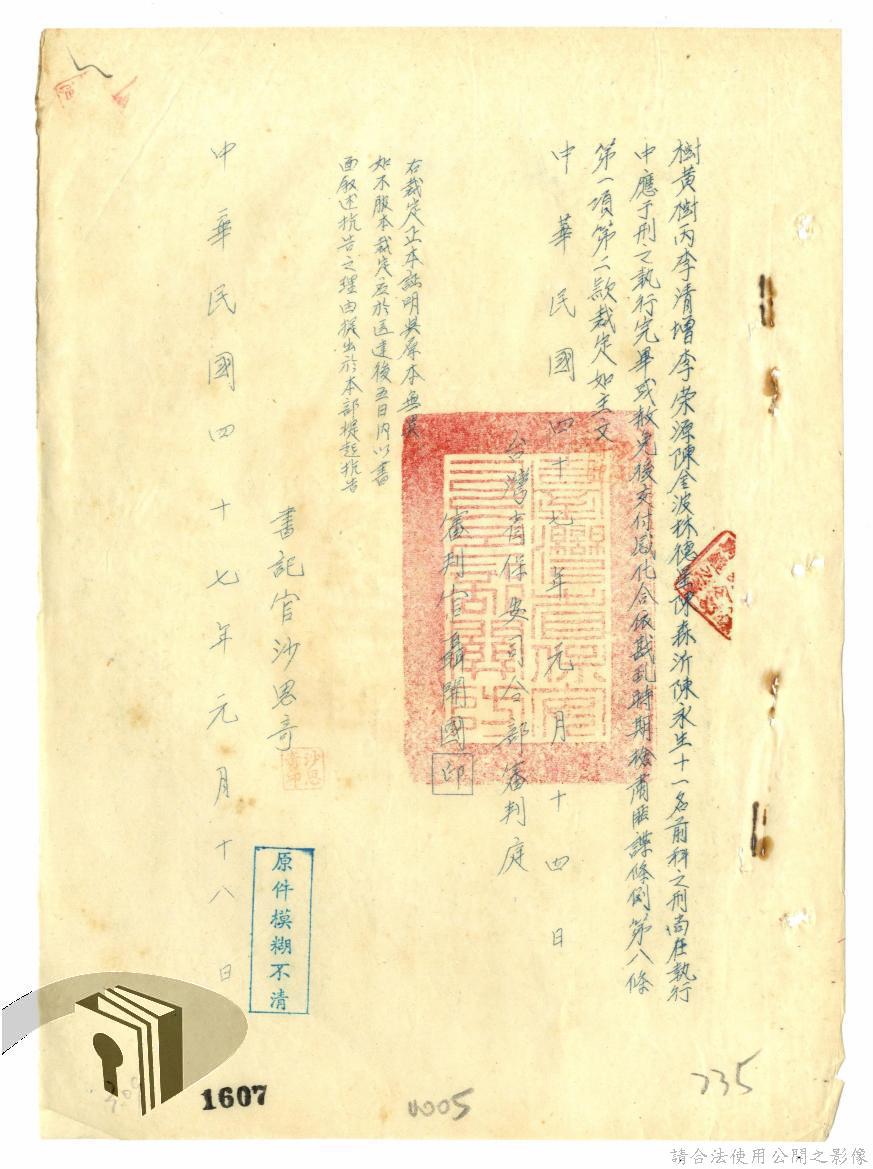 樹黃樹丙李清增李荣源陳金波林德星陳森沂陳永生十一名前科之刑尚在執行
中應于刑之執行完畢或赦免後交付感化合依戡乱時期檢肅匪諜條例第八條
第一項第二款裁定如主文
中華民國四十七年元月十四日
台灣省保安司令部審判庭
審判官聶開國
印
右裁定正本証明與原本無異
如不服本裁定应於送達後五日內以書
面叙述抗告之理由提出於本部提起抗告
書記官沙恩奇
中華民國四十七年元月十八日
原件模糊不清
1607
0005
735
請合法使用公開之影像